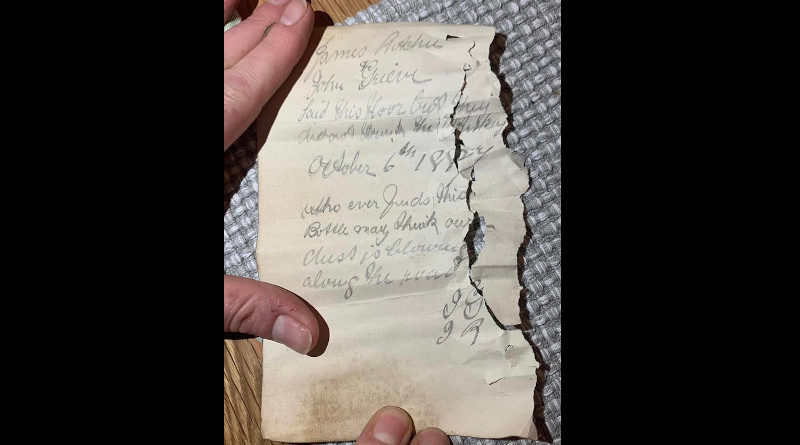 James Ritchie
& 
John Grieve
laid this floor but they
did not drink the whisky
October 6th 1887
who ever finds this
Bottle may think our
dust is blowing
along the road
J G
J R